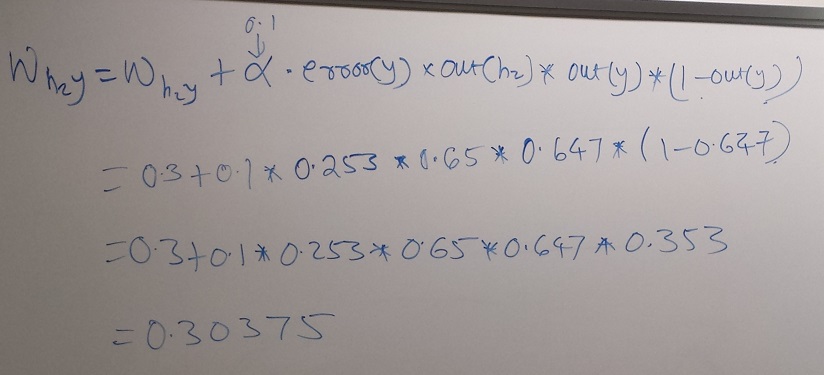 0.1
↓
W_{h_2y} = W_{h_2y} + α . error(y) × out(h_2) * out(y) * (1-out(y))
= 0.3 + 0.1 * 0.253 * 0.65 * 0.647 * (1-0.647)
= 0.3 + 0.1 * 0.253 * 0.65 * 0.647 * 0.353
= 0.30375